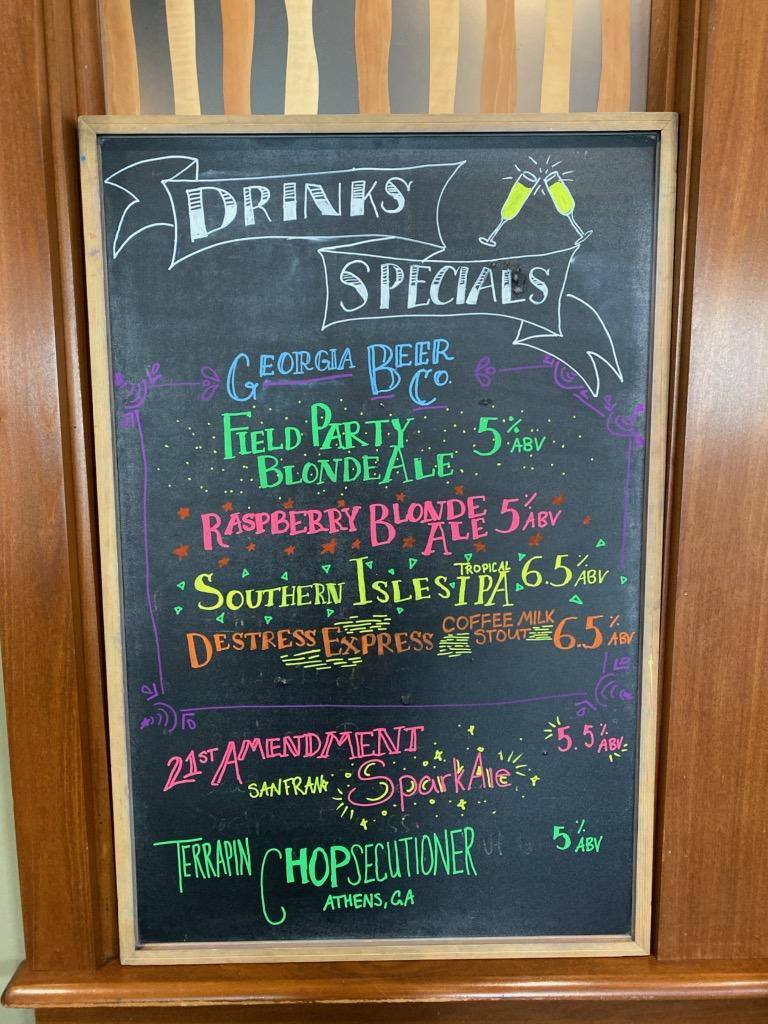 DRINKS
SPECIALS
GEORGIA BEER
CO.
FIELD PARTY
BLONDE ALE 5% ABV
RASPBERRY BLONDE
ALE 5% ABV
SOUTHERN ISLES TROPICAL
IPA 6.5% ABV
DESTRESS EXPRESS COFFEE MILK
STOUT 6.5% ABV
21ST AMENDMENT 5.5% ABV
SAN FRAN SparkAle
TERRAPIN CHOPSECUTIONER 5% ABV
ATHENS, GA